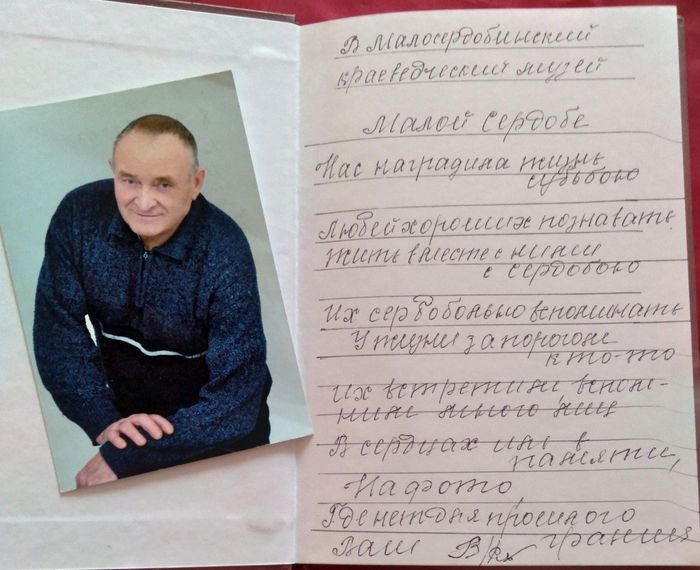 В Малосердобинский
краеведческий музей
Малой Сердобе
Нас наградила жизнь
судьбою
Людей хороших познавать
Жить вместе с ними
с Сердобою
Их с
вспоминать
У жизни за порогом
кто-то
Их встретим вспом-
ним много лиц
В сердцах или в
памяти,
На фото
Где нет для прошлого
границ
Ваш